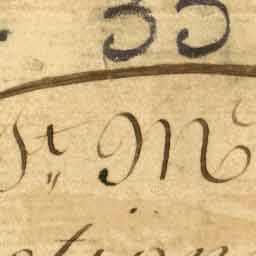 33
St M
ction